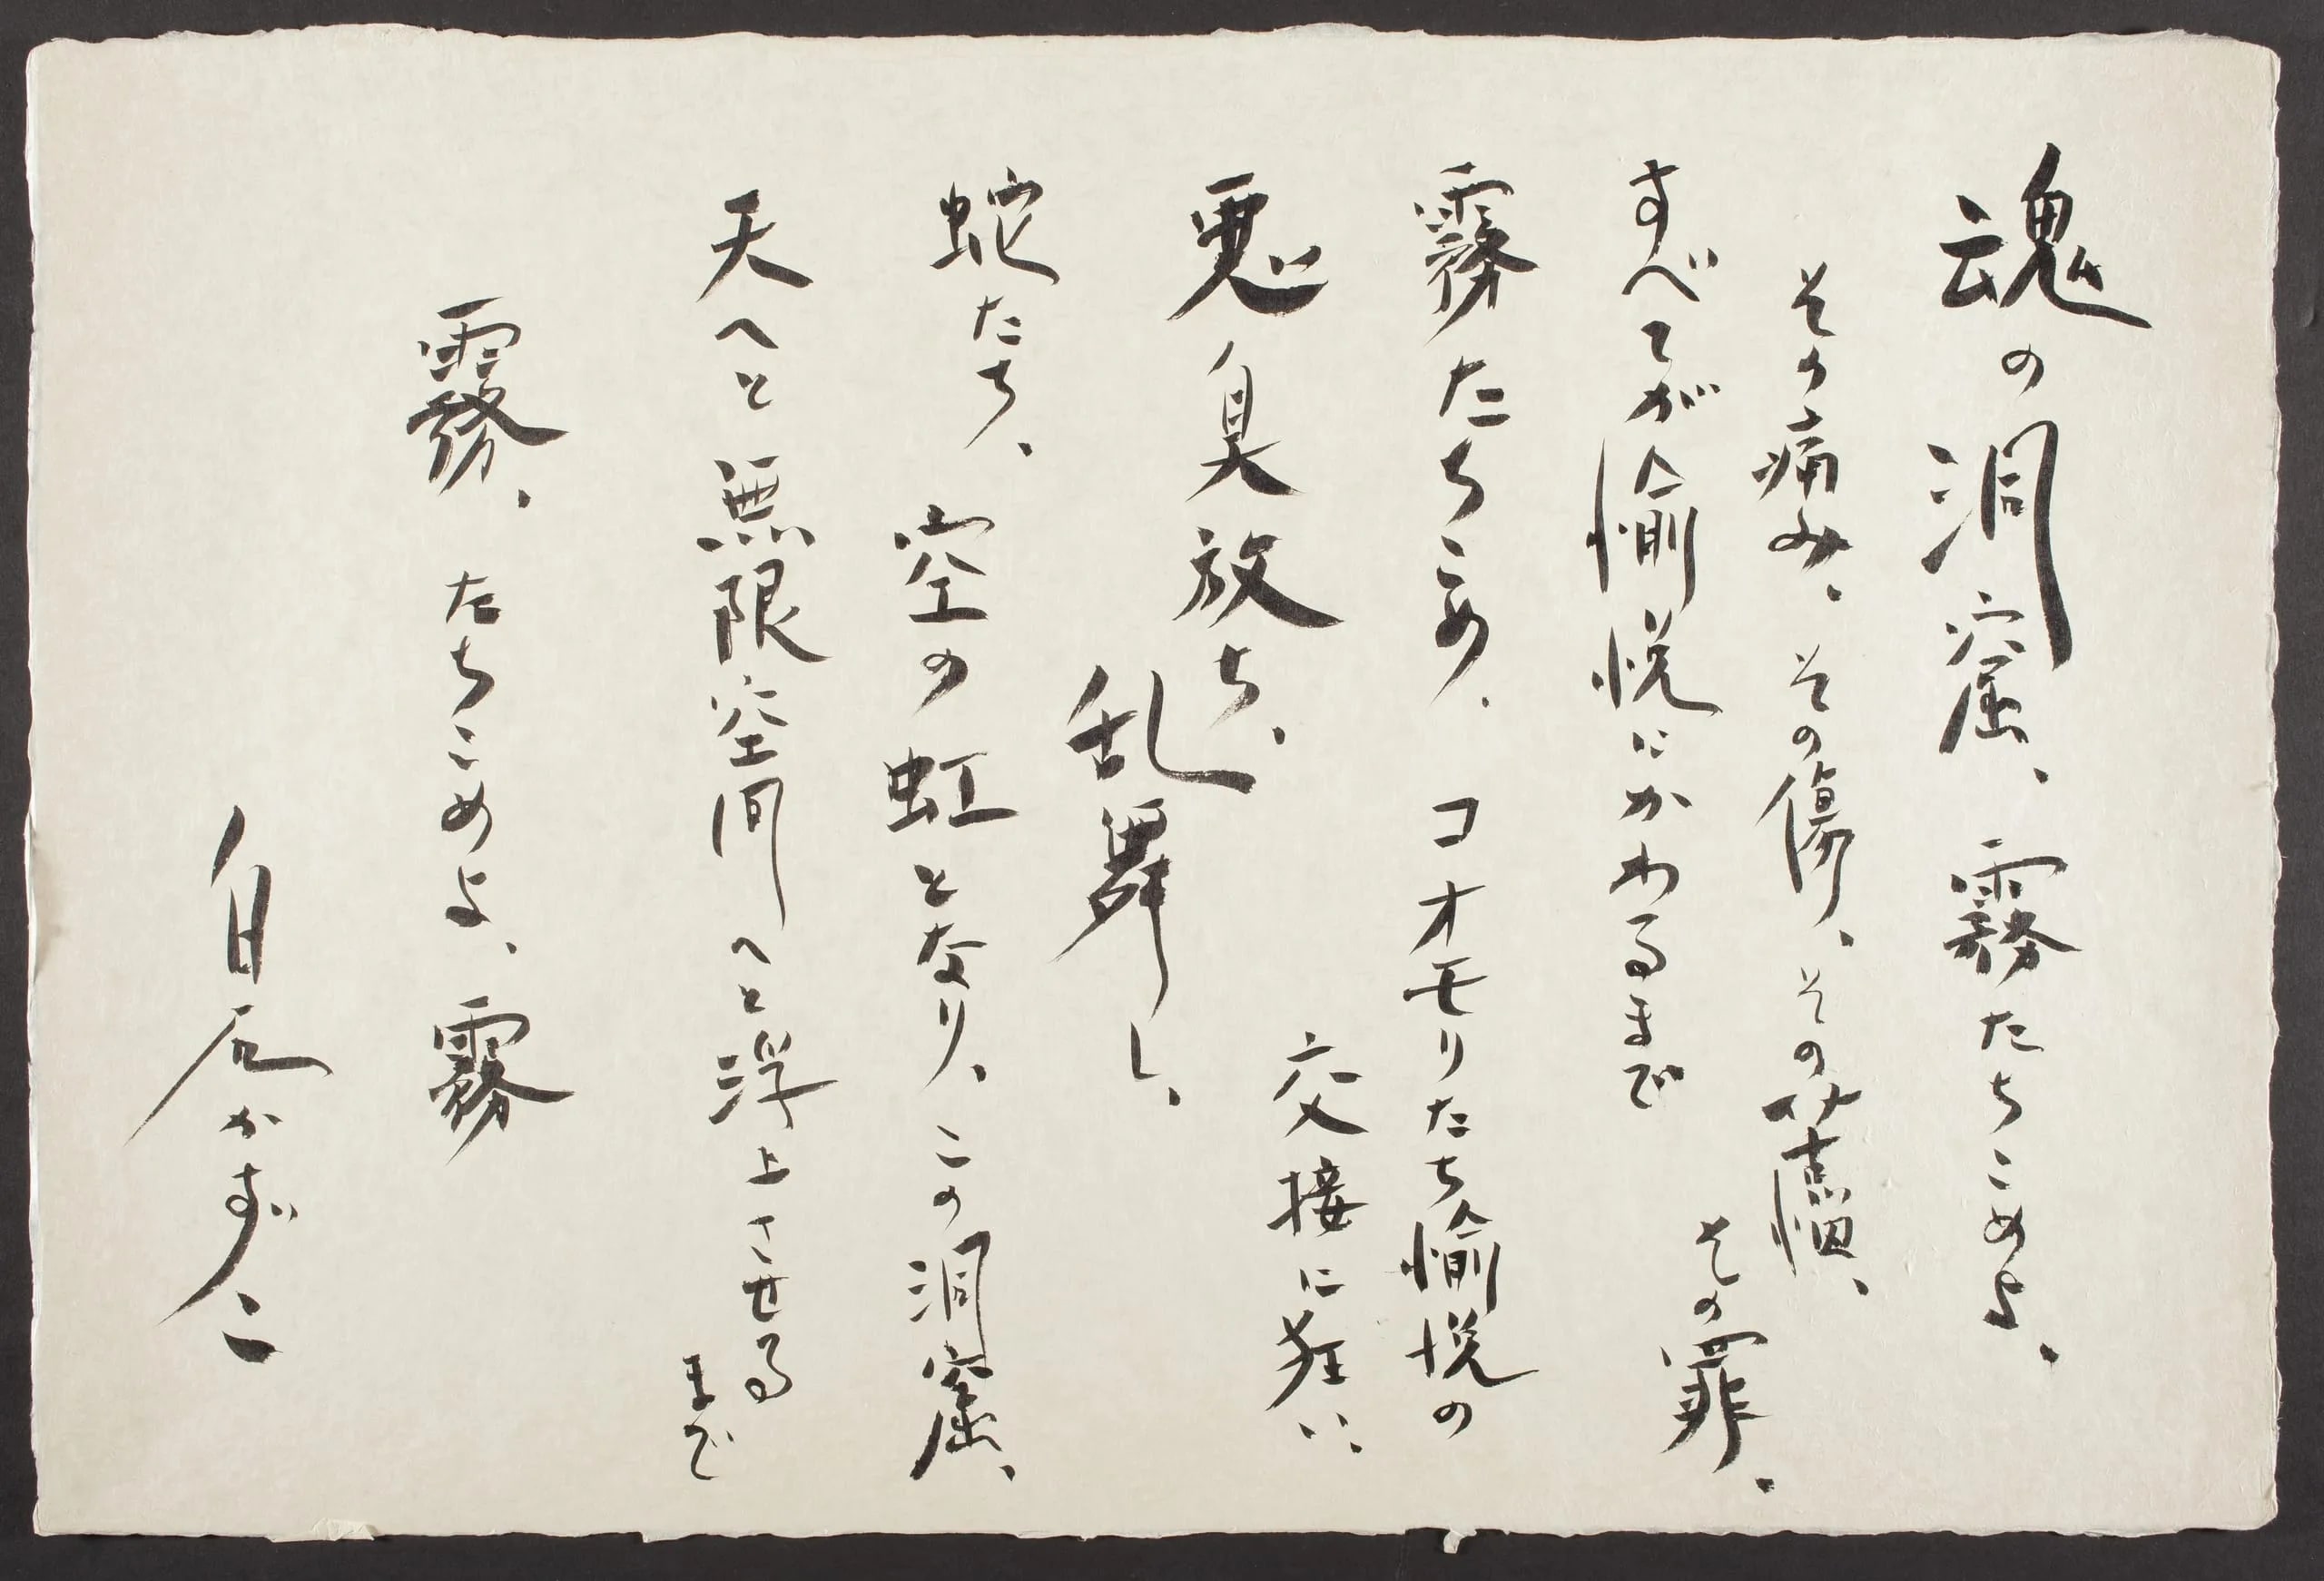 魂の洞窟、霧たちこめよ、
その痛み、その傷、その憤、
その罪、
すべてが愉悦にかわるまで
霧たちこめ、コオモリたち愉悦の
交接に狂い、
悪臭放ち、
乱舞し、
蛇たち、空の虹となり、この洞窟、
天へと無限空間へと浮上させる
まで
霧、たちこめよ、霧
白石かずこ